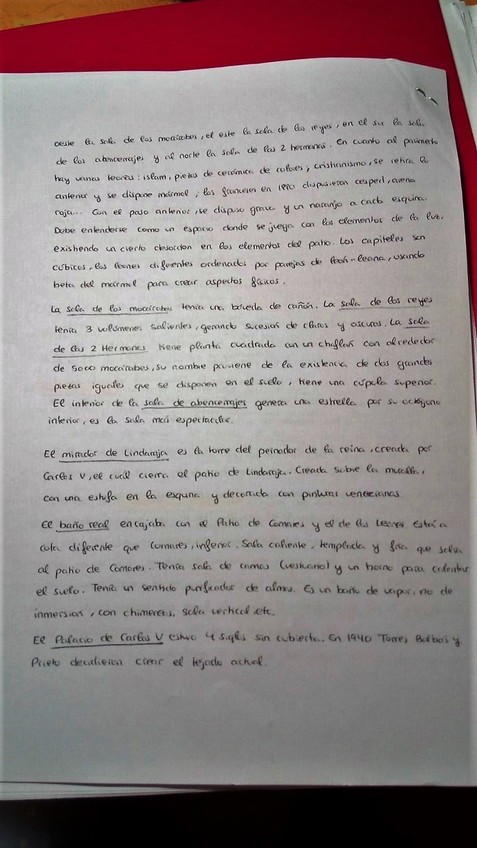 oeste la sala de los mocárabes, el este la sala de los reyes, en el sur la sala
de los abencerrajes y al norte la sala de las 2 hermanas. En cuanto al pavimento
hay varias teorías: islam, piezas de cerámica de colores, cristianismo, se retira la
anterior y se dispone mármol, los franceses en 1810 dispusieron cesped, arena
roja... Con el paso anterior, se dispuso grava y un naranjo a cada esquina.
Debe entenderse como un espacio donde se juega con los elementos de la luz,
existiendo un cierto desorden en los elementos del patio. Los capiteles son
cúbicos, los leones diferentes ordenados por parejas de león-leona, usando
beta del mármol para crear aspectos físicos.
La sala de los mocárabes tenía una bóveda de cañón. La sala de los reyes
tenía 3 volúmenes salientes, generando sucesión de claros y oscuros. La sala
de las 2 Hermanas tiene planta cuadrada con un chaflán con alrededor
de 5000 mocárabes, su nombre proviene de la existencia de dos grandes
piezas iguales que se disponen en el suelo, tiene una cúpula superior.
El interior de la sala de abencerrajes genera una estrella por su octógono
interior, es la sala más espectacular.
El mirador de Lindaraja es la torre del peinador de la reina, creada por
Carlos V, el cuál cierra el patio de Lindaraja. Creada sobre la muralla,
con una estufa en la esquina y decorada con pinturas venecianas.
El baño real encajaba con el Patio de Comares y el de los Leones. Está a
cota diferente que Comares, inferior. Sala caliente, templada y fría que salía
al patio de Comares. Tenía sala de camas (vestuario) y un horno para calentar
el suelo. Tenía un sentido purificador de almas. Es un baño de vapor, no de
inmersión, con chimeneas, sala vertical etc.
El Palacio de Carlos V estuvo 4 siglos sin cubierta. En 1940 Torres Balbás y
Prieto decidieron crear el tejado actual.